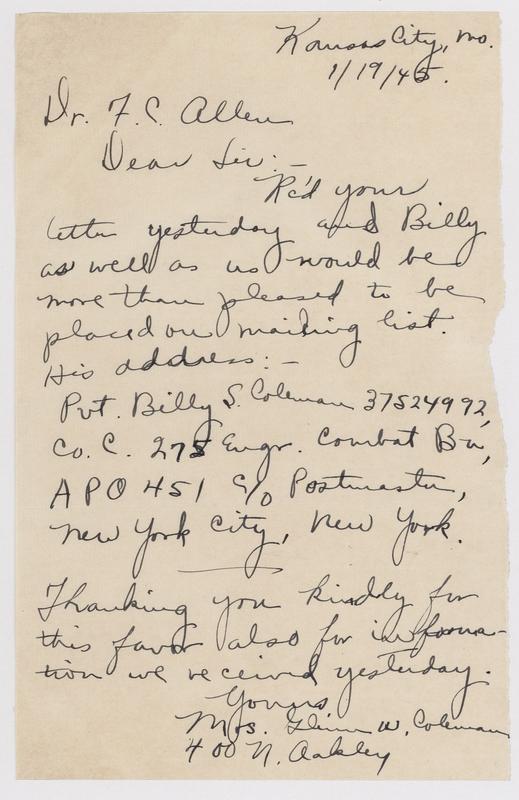 Kansas City, Mo.
1/19/45.
Dr. F. C. Allen
Dear Sir:-
Rc'd your
letter yesterday and Billy
as well as us would be
more than pleased to be
placed on mailing list.
His address:-
Pvt. Billy S. Coleman 37524992,
Co. C. 275 Engr. Combat Bn,
APO 451 c/o Postmaster,
New York City, New York.
Thanking you kindly for
this favor also for informa-
tion we received yesterday.
Yours
Mrs. Glenn W. Coleman
400 N. Oakley